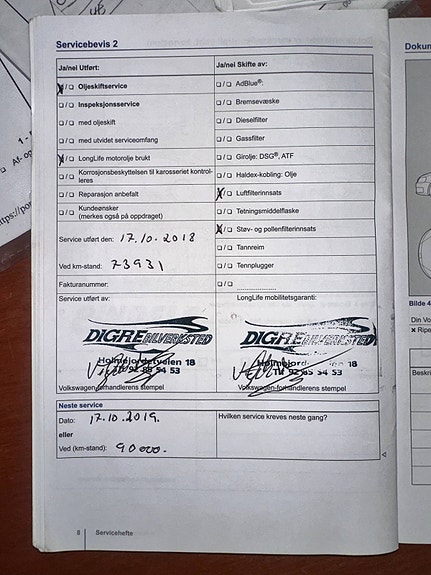 Servicebevis 2
Ja/nei Utført:
Ja/nei Skifte av:
X/☐ Oljeskiftservice
☐/☐ AdBlue®.
☐/☐ Inspeksjonsservice
☐/☐ Bremsevæske
☐/☐ med oljeskift
☐/☐ Dieselfilter
☐/☐ med utvidet serviceomfang
☐/☐ Gassfilter
X/☐ LongLife motorolje brukt
☐/☐ Girolje: DSG®, ATF
☐/☐ Korrosjonsbeskyttelsen til karosseriet kontrol-
leres
☐/☐ Haldex-kobling: Olje
☐/☐ Reparasjon anbefalt
X/☐ Luftfilterinnsats
☐/☐ Kundeønsker
(merkes også på oppdraget)
☐/☐ Tetningsmiddelflaske
Service utført den: 17.10.2018
X/☐ Støv- og pollenfilterinnsats
☐/☐ Tannreim
Ved km-stand: 73931
☐/☐ Tennplugger
Fakturanummer:
☐/☐ ....................
Service utført av:
LongLife mobilitetsgaranti:
DIGRE BILVERKSTED
DIGRE BILVERKSTED
Holmejordetveien 18
Tlf 92 85 54 53
Tlf 92 85 54 53
Volkswagen-forhandlerens stempel
Volkswagen-forhandlerens stempel
Neste service
Dato: 17.10.2019.
Hvilken service kreves neste gang?
eller
Ved (km-stand): 90000.
8 Servicehefte
Dokun
Bilde 4
Din Vo
Ripe
Beskri